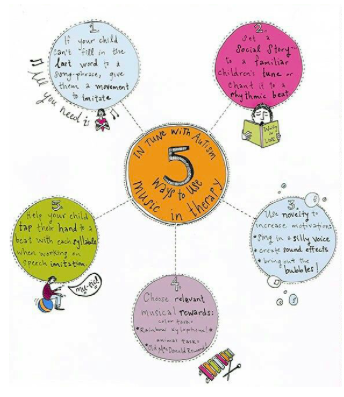 IN TUNE WITH AUTISM
5
WAYS to USE
music in therapy
1.
If your child
can't fill in the
last word to a
song-phrase, give
them a movement
to imitate
All you need is
2.
Set a
Social Story
to a familiar
children's tune or
chant it to a
rhythmic beat
Waiting
in
Line
3.
Use novelty to
increase motivation:
• Sing in a silly voice
• create sound effects
• bring out the
bubbles!
4.
Choose relevant
musical rewards:
color task:
• Rainbow xylophone!
animal task:
• Old MacDonald Reward!
5.
Help your child
tap their hand to a
beat with each syllable
when working on
speech imitation